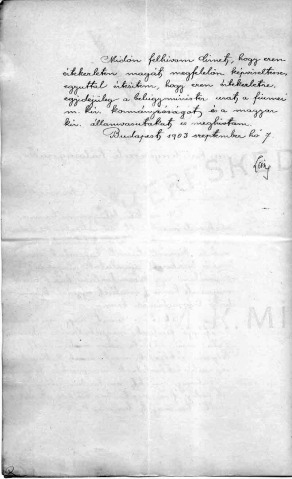 Midőn felhívom Címet, hogy ezen
értekezleten magát megfelelően képviseltesse,
egyúttal értesítem, hogy ezen értekezletre,
egyidejűleg a belügyminister urat a fiumei
m. kir. kormányzóságot és a magyar
kir. államvasutakat is meghívtam.
Budapest, 1903 szeptember hó 7.